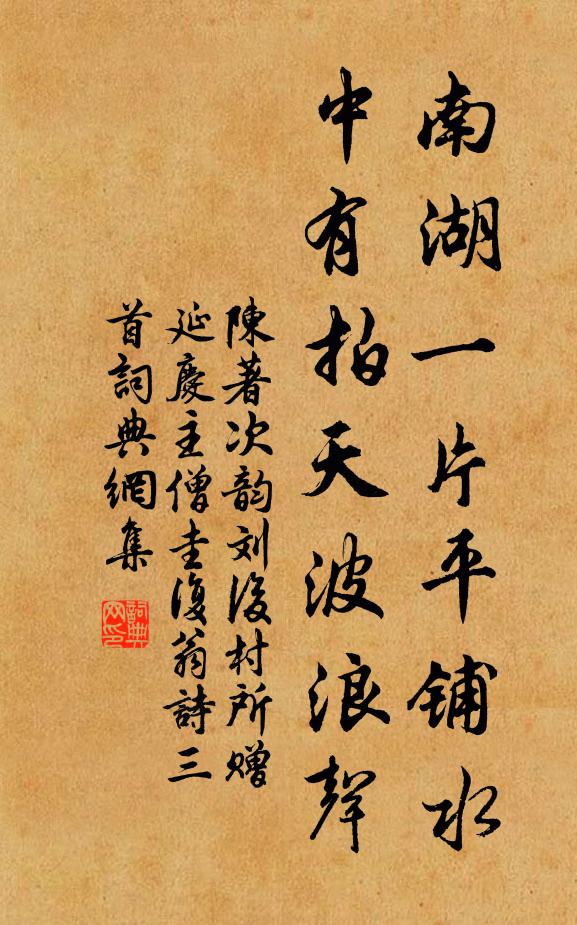 南湖一片平铺水
中有拍天波浪聲
陳著次韵刘後村所赠
延慶主僧圭復翁詩三
首詞典網集
詞典网印